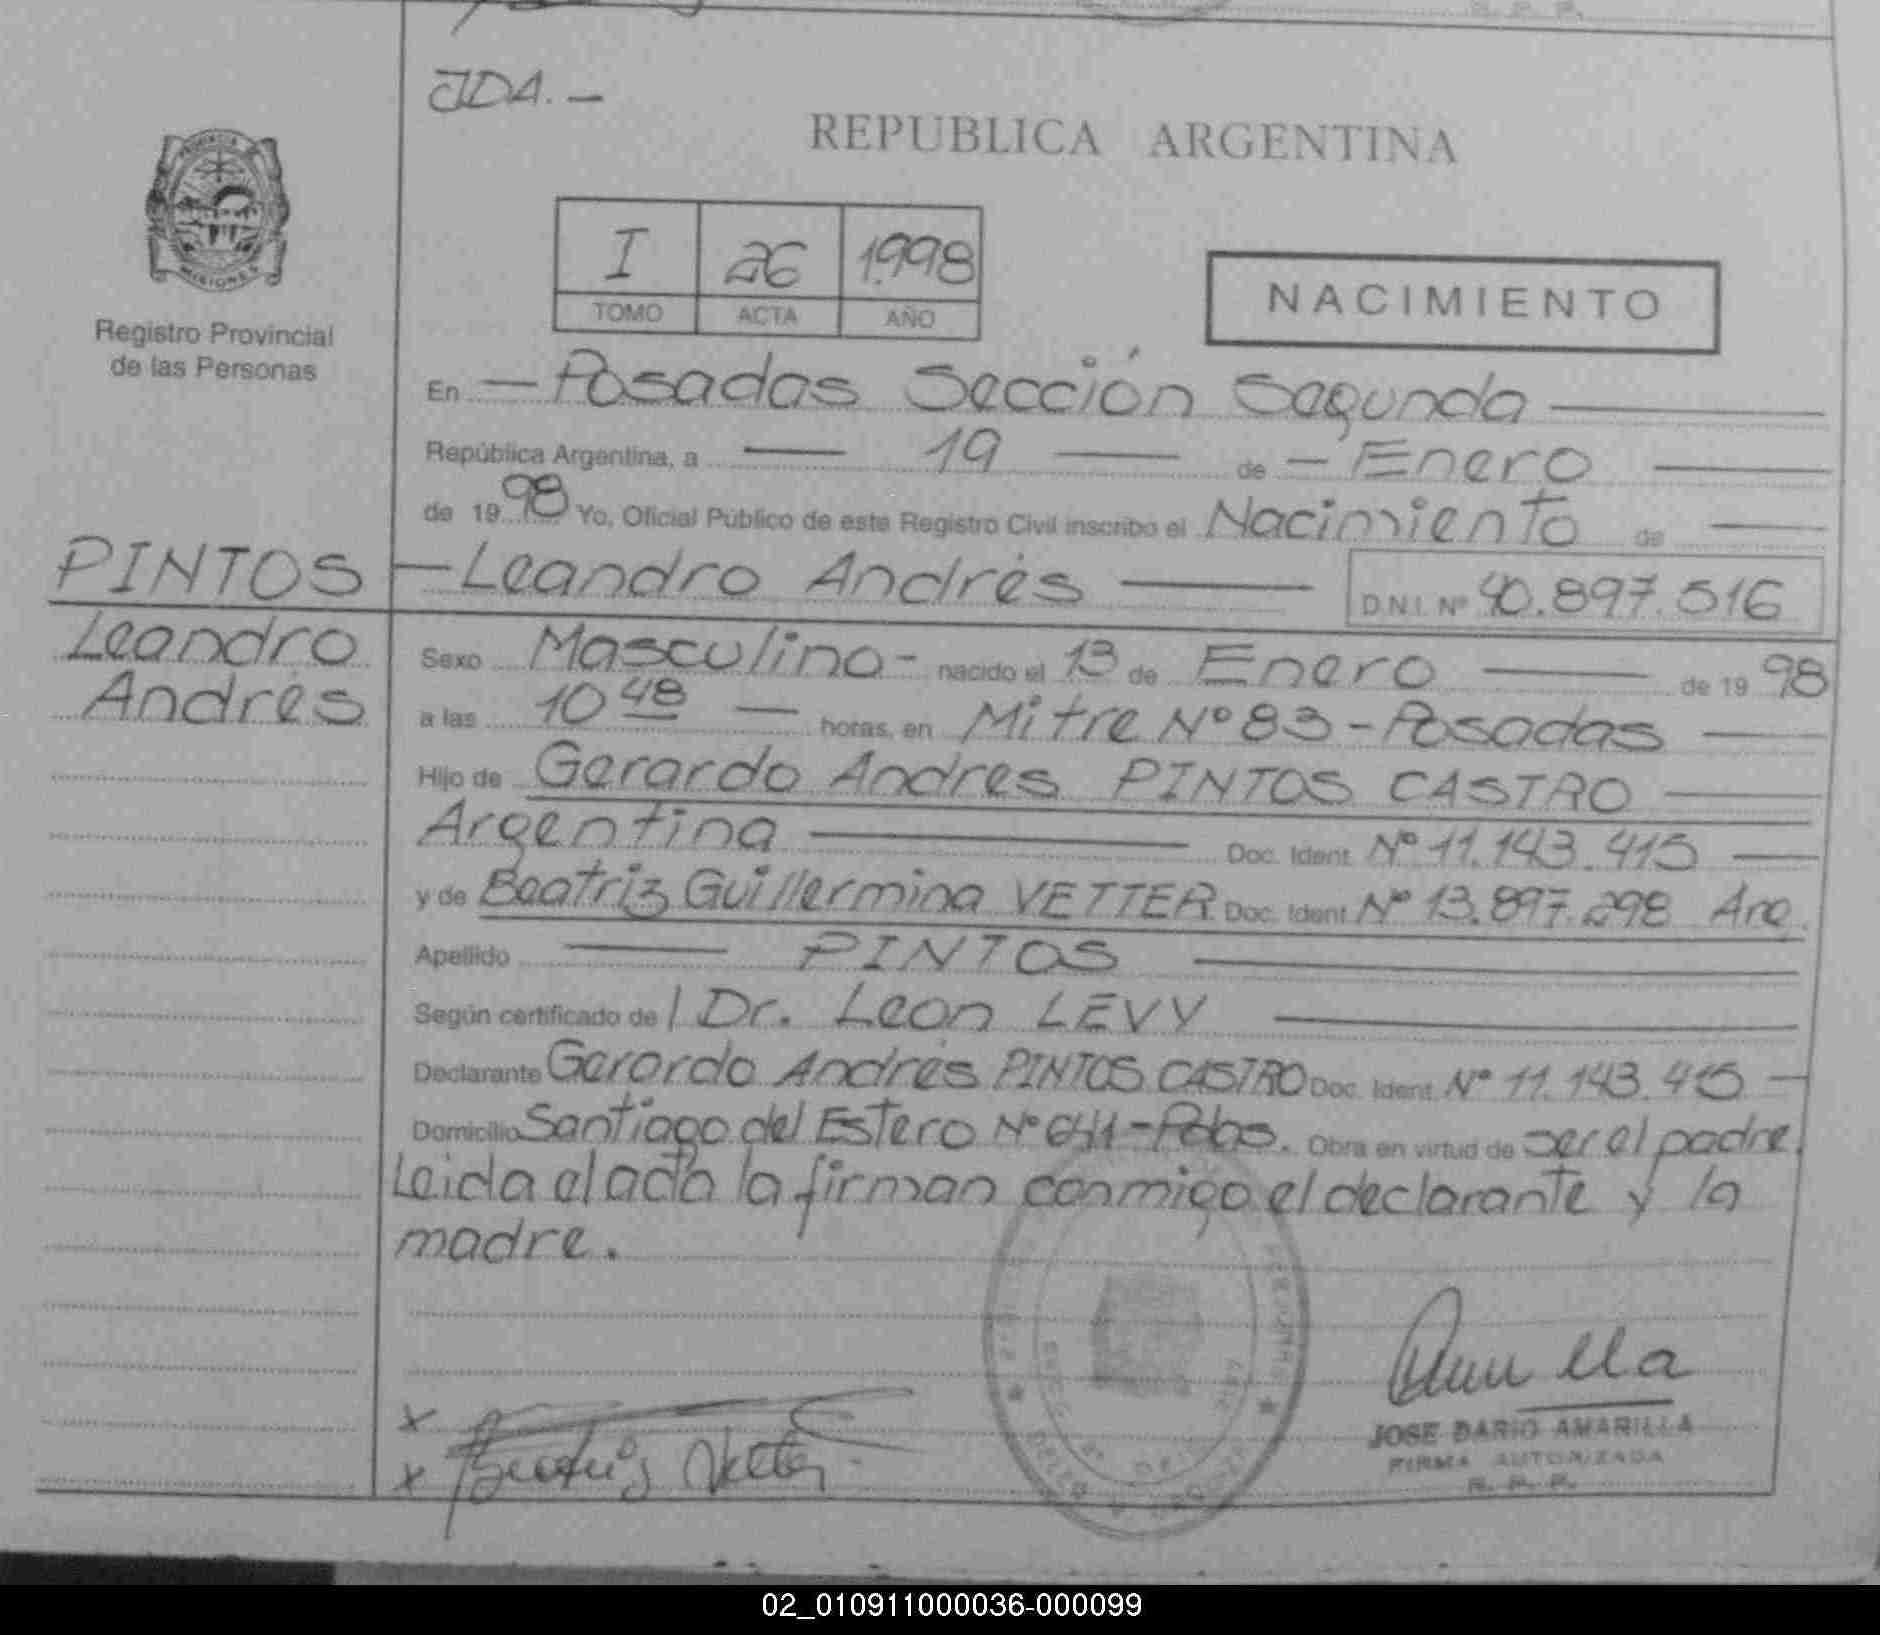 JDA. —
REPUBLICA ARGENTINA
I 26 1.998
TOMO ACTA AÑO
NACIMIENTO
MISIONES
Registro Provincial
de las Personas
En — Posadas Sección Segunda —
República Argentina, a — 19 — de — Enero —
de 1998 Yo, Oficial Público de este Registro Civil inscribo el Nacimiento de —
PINTOS — Leandro Andrés — D.N.I. Nº 40.897.516
Leandro
Andrés
Sexo Masculino - nacido el 13 de Enero — de 1998
a las 10 48 — horas, en Mitre Nº 83 - Posadas —
Hijo de Gerardo Andres PINTOS CASTRO —
Argentina — Doc. Ident. Nº 11.143.415 —
y de Beatriz Guillermina VETTER Doc. Ident. Nº 13.897.298 Arg.
Apellido — PINTOS —
Según certificado de / Dr. Leon LEVY —
Declarante Gerardo Andrés PINTOS CASTRO Doc. Ident. Nº 11.143.415 —
Domicilio Santiago del Estero Nº 641 - Pdas. Obra en virtud de ser el padre.
Leida el acta la firman conmigo el declarante y la
madre.
x
x Beatriz Vetter
JOSE DARIO AMARILLA
FIRMA AUTORIZADA
R. P. P.
02_010911000036-000099